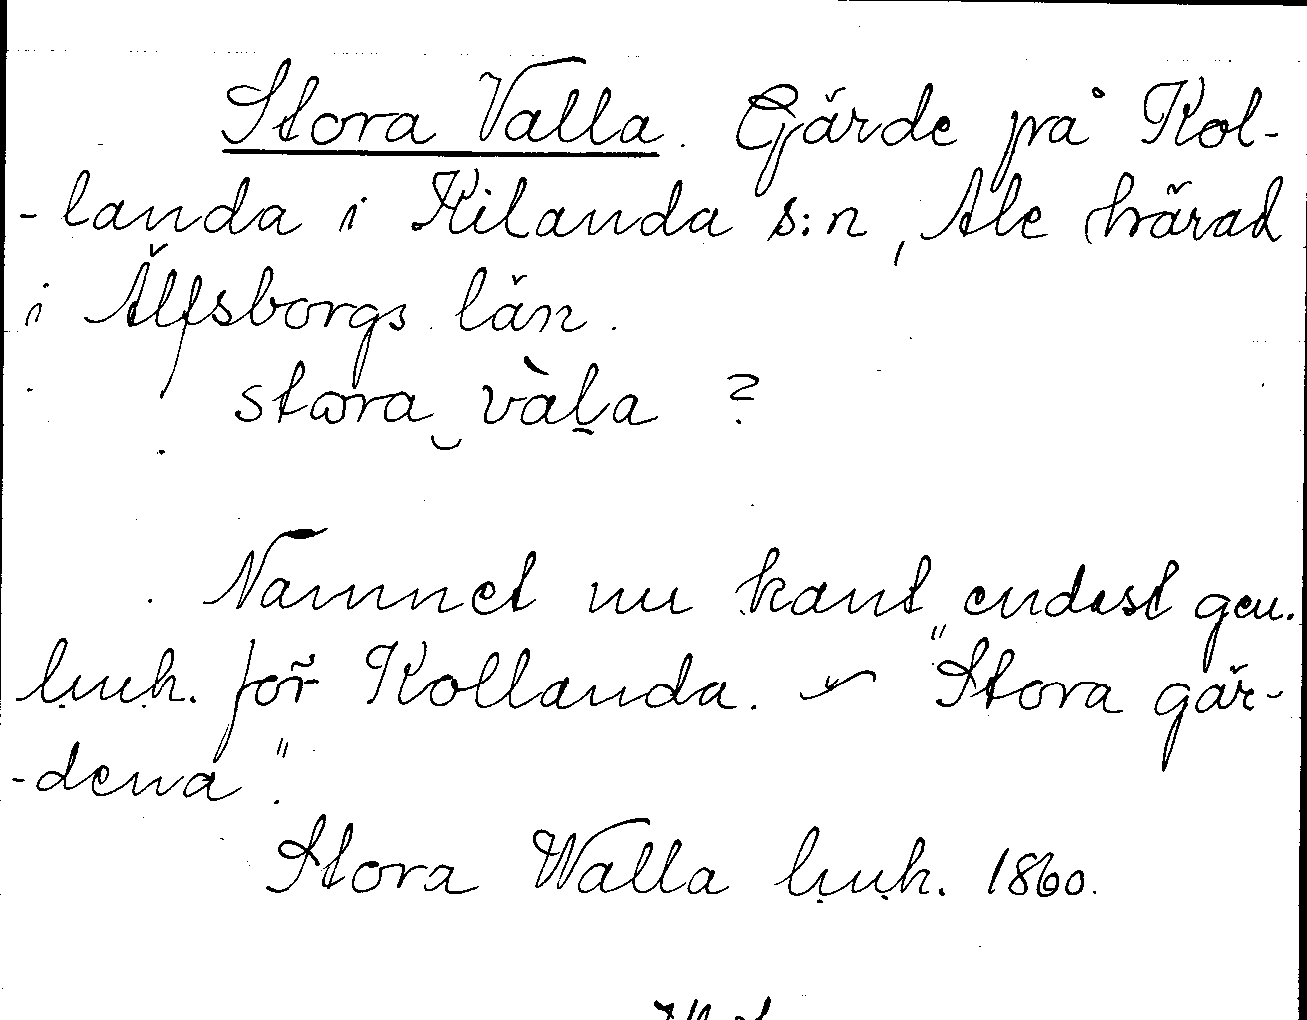 Stora Valla. Gärde på Kol-
-landa i Kilanda s:n, Ale härad
i Älfsborgs län.
stωra‿vàl̠a ?
Namnet nu känt endast gen.
l.u.h. för Kollanda. ~ "Stora gär-
-dena".
Stora Walla l.u.h. 1860.